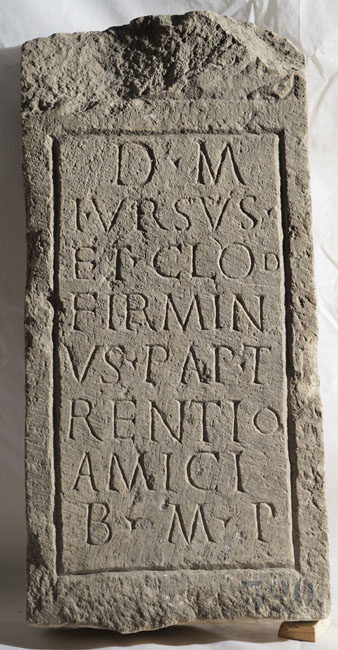 D·M
I·VRSVS·
ET·CLOD
FIRMIN
VS·PAP·T
RENTIO
AMICI
B·M·P